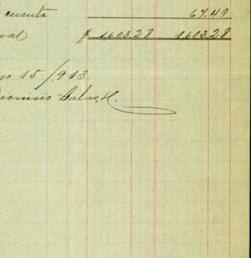 cuenta 67.49
$ 1,403.28 1,403.28
15/913.
Dionisio Salas, H.